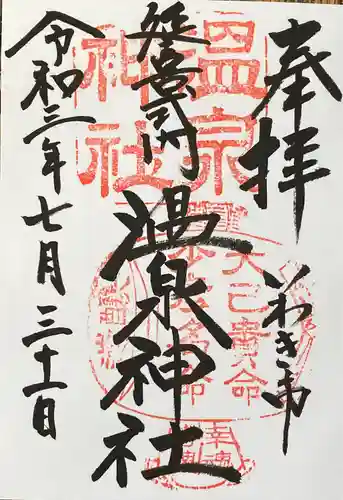 奉拝
いわき市
温泉神社
令和三年七月三十一日
温泉
神社
大己貴命
少彦名命